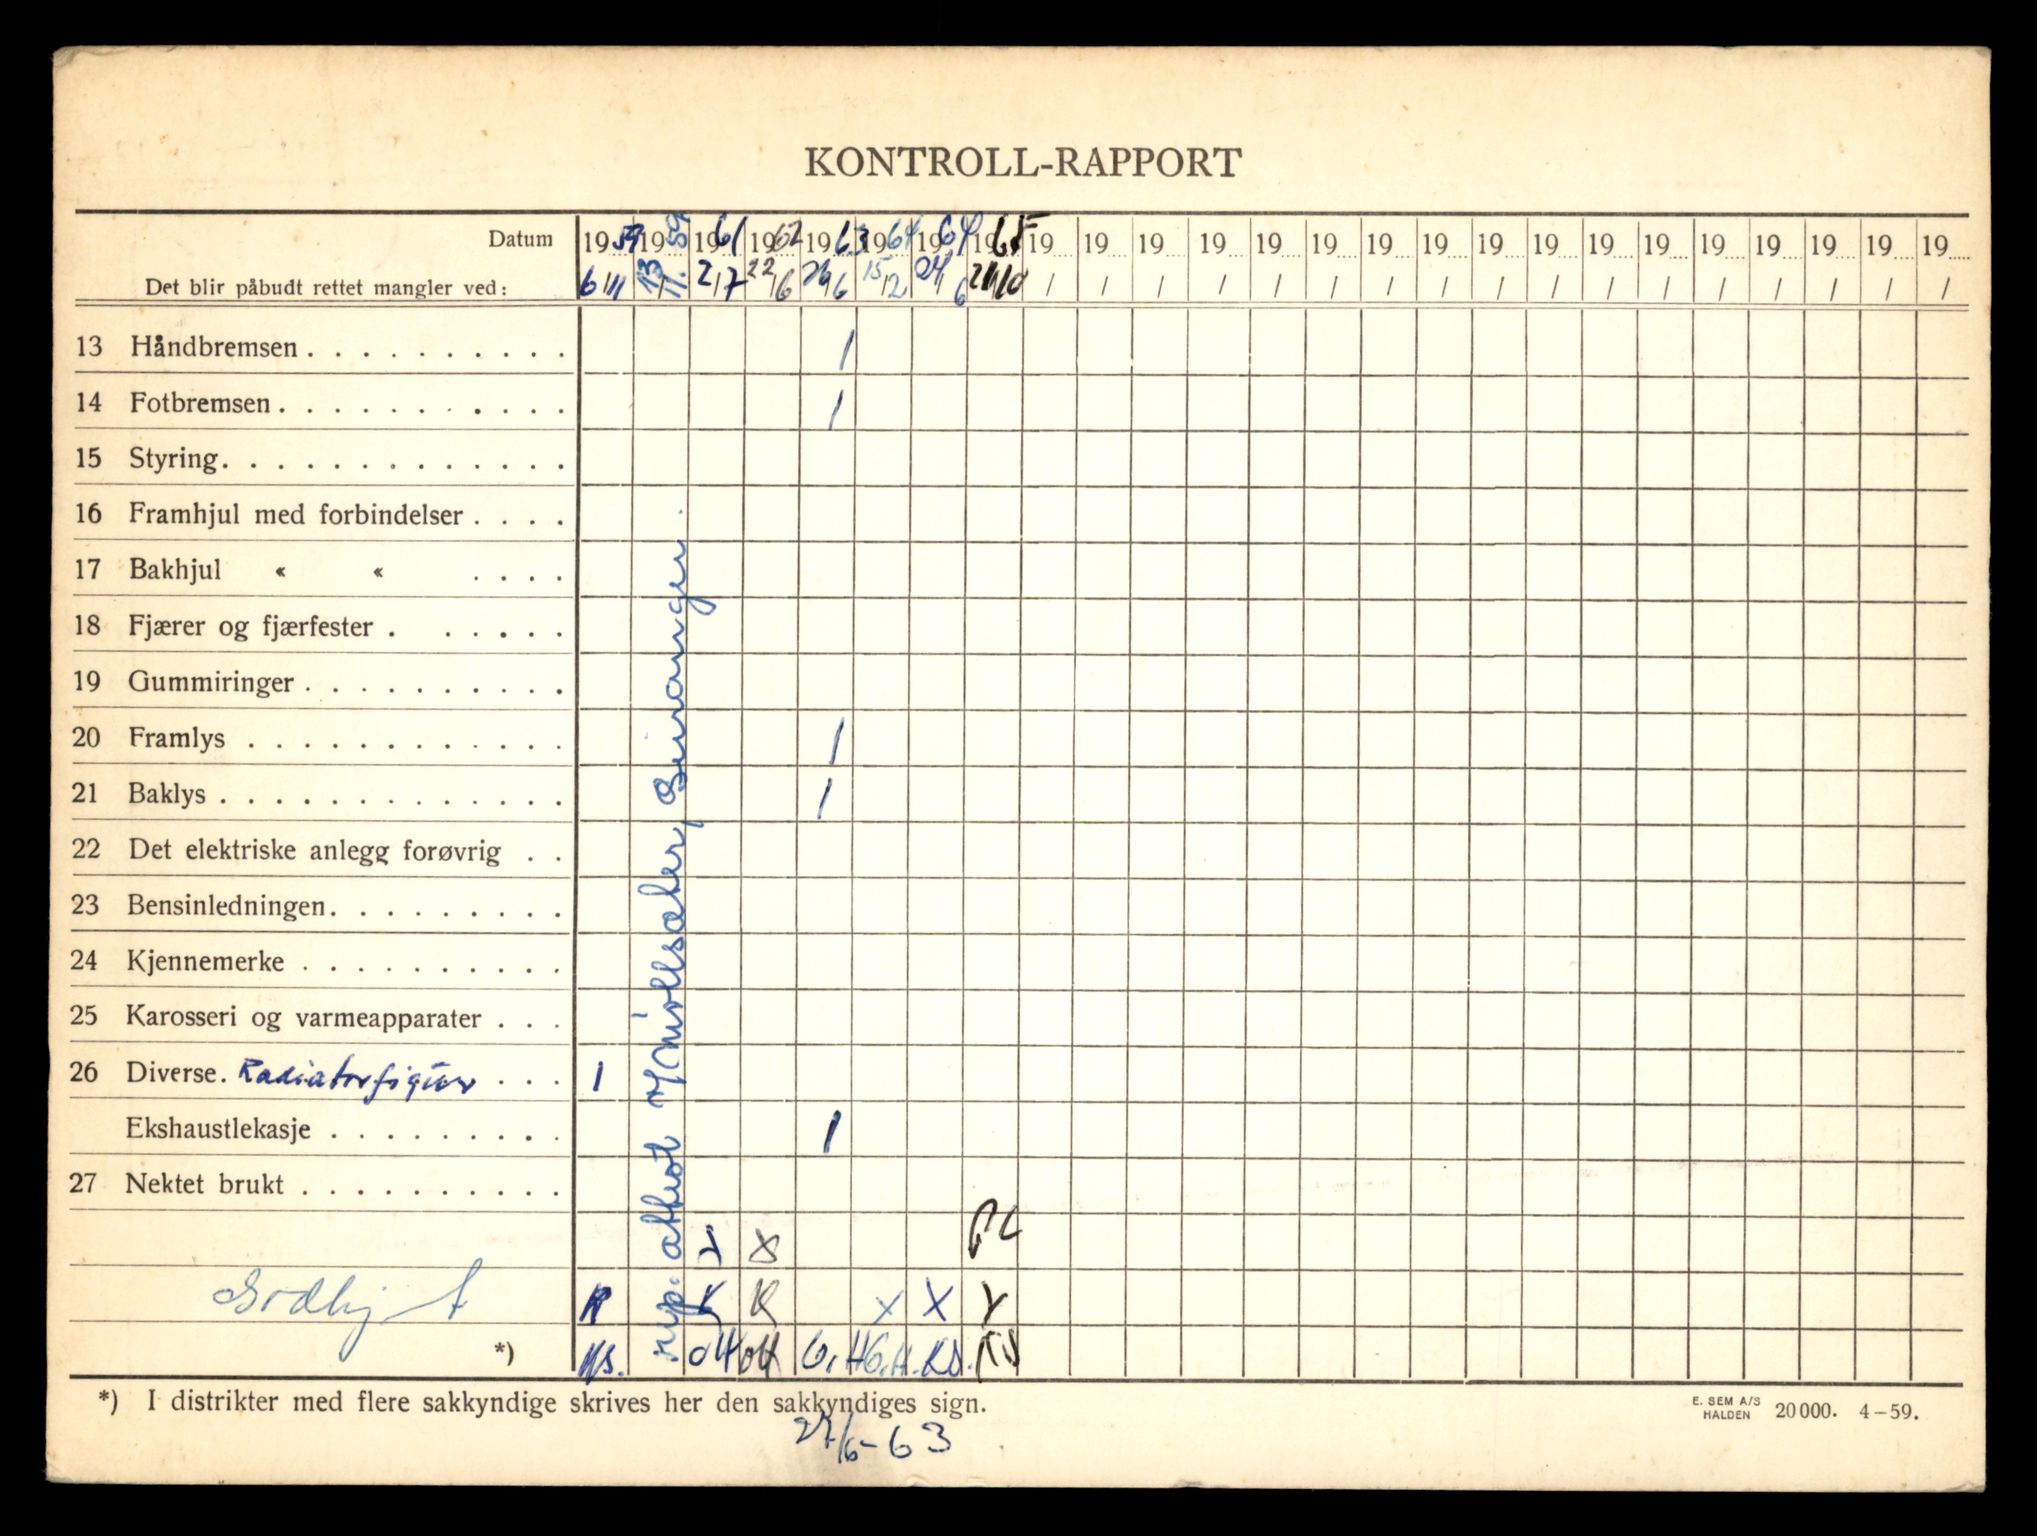 KONTROLL-RAPPORT
Datum 1959 1959 1961 1962 1963 1964 1964 1965 19 19 19 19 19 19 19 19 19 19 19 19 19 19 19 19 19
Det blir påbudt rettet mangler ved: 6/11 13/11. 2/7 22/6 24/6 15/12 24/6 21/10 / / / / / / / / / / / / / / / / /
13 Håndbremsen /
14 Fotbremsen /
15 Styring
16 Framhjul med forbindelser
17 Bakhjul « «
18 Fjærer og fjærfester
19 Gummiringer
20 Framlys /
21 Baklys /
22 Det elektriske anlegg forøvrig
23 Bensinledningen
24 Kjennemerke
25 Karosseri og varmeapparater
26 Diverse. Radiatorfigur 1
Ekshaustlekasje /
27 Nektet brukt
attest
X X X
*) G.H G.H.
*) I distrikter med flere sakkyndige skrives her den sakkyndiges sign.
E. SEM A/S HALDEN 20000. 4-59.
27/6-63